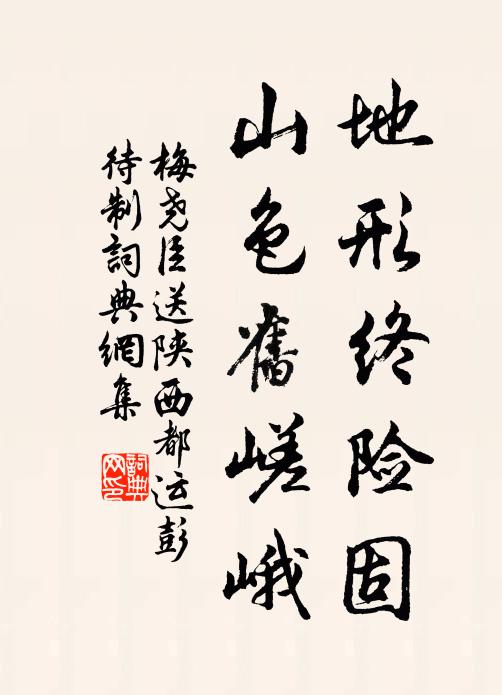 地形终险固
山色舊嵯峨
梅尧臣送陕西都运彭
待制詞典網集
詞典网印